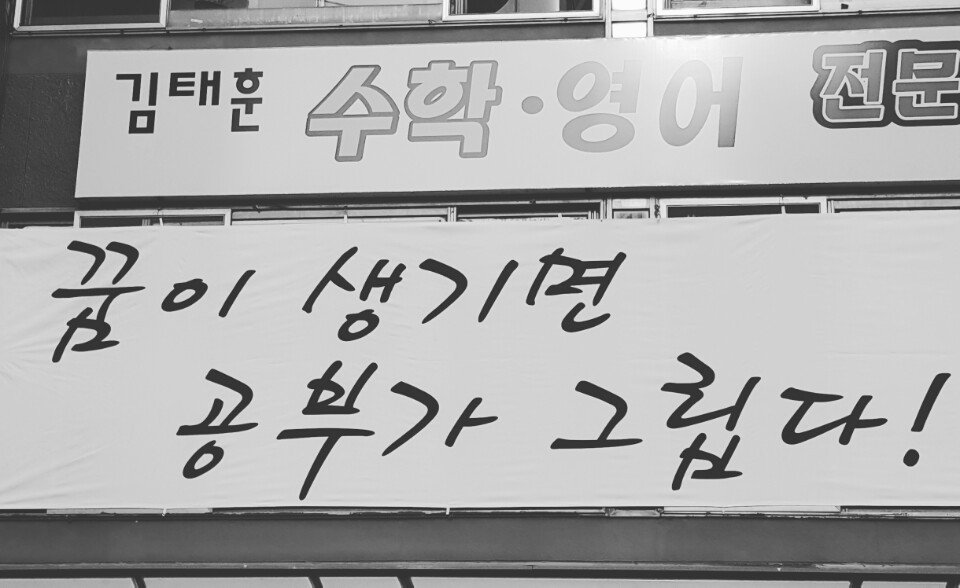 김태훈 수학·영어 전문
꿈이 생기면
공부가 그립다!